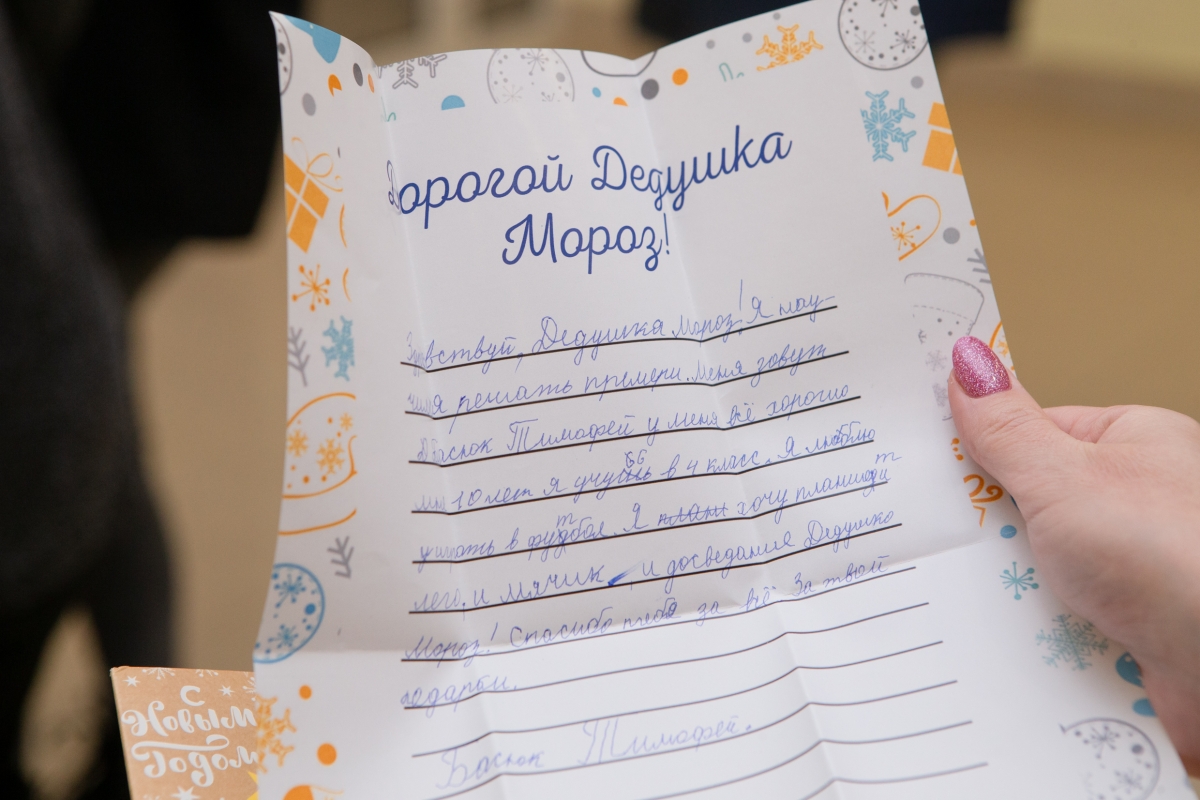 Дорогой Дедушка
Мороз!
Здравствуй, Дедушка мароз! Я нау-
чился решать примери. Меня зовут
Басюк Тимофей у меня всё хорошо
мне 10 лет я учусь в 4 класс. Я люблю
играть в футбол. Я хочу планшет
лего. и мячик, и досведание Дедушко
Мороз! Спасибо тебе за всё За твой
подарки.
Басюк Тимофей.
С
Новым
Годом